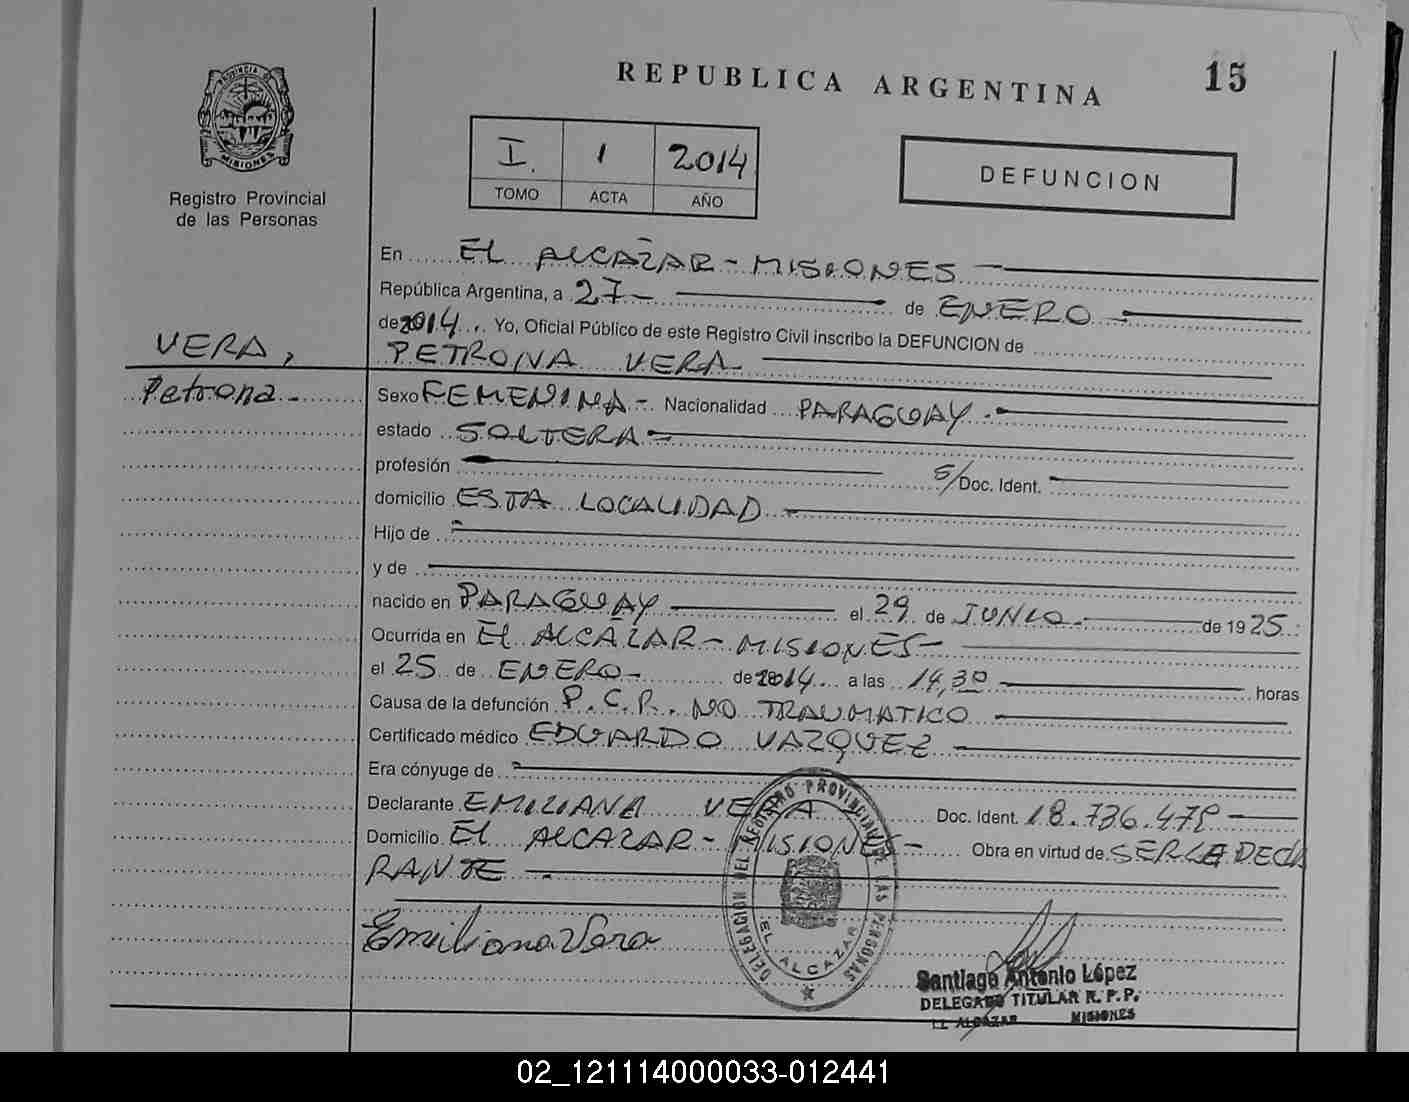 REPUBLICA ARGENTINA
15
PROVINCIA DE
MISIONES
Registro Provincial
de las Personas
I. 1 2014
TOMO ACTA AÑO
DEFUNCION
En EL ALCAZAR - MISIONES
República Argentina, a 27 - de ENERO
de 2014 Yo, Oficial Público de este Registro Civil inscribo la DEFUNCION de
VERA,
PETRONA VERA
Petrona
Sexo FEMENINA - Nacionalidad PARAGUAY
estado SOLTERA
profesión S/ Doc. Ident.
domicilio ESTA LOCALIDAD
Hijo de
y de
nacido en PARAGUAY el 29 de JUNIO de 1925
Ocurrida en EL ALCAZAR - MISIONES -
el 25 de ENERO - de 2014 a las 14,30 horas
Causa de la defunción P.C.R. NO TRAUMATICO
Certificado médico EDUARDO VAZQUEZ
Era cónyuge de
Declarante EMILIANA VERA Doc. Ident. 18.736.478
Domicilio EL ALCAZAR - MISIONES - Obra en virtud de SER LA DECLA
RANTE
Emiliana Vera
DELEGACION DEL REGISTRO PROVINCIAL DE LAS PERSONAS
EL ALCAZAR
Santiago Antonio López
DELEGADO TITULAR R. P. P.
EL ALCAZAR MISIONES
02_121114000033-012441